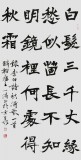 白髮三千丈緣
愁似箇長不知
明鏡裡何處得
秋霜